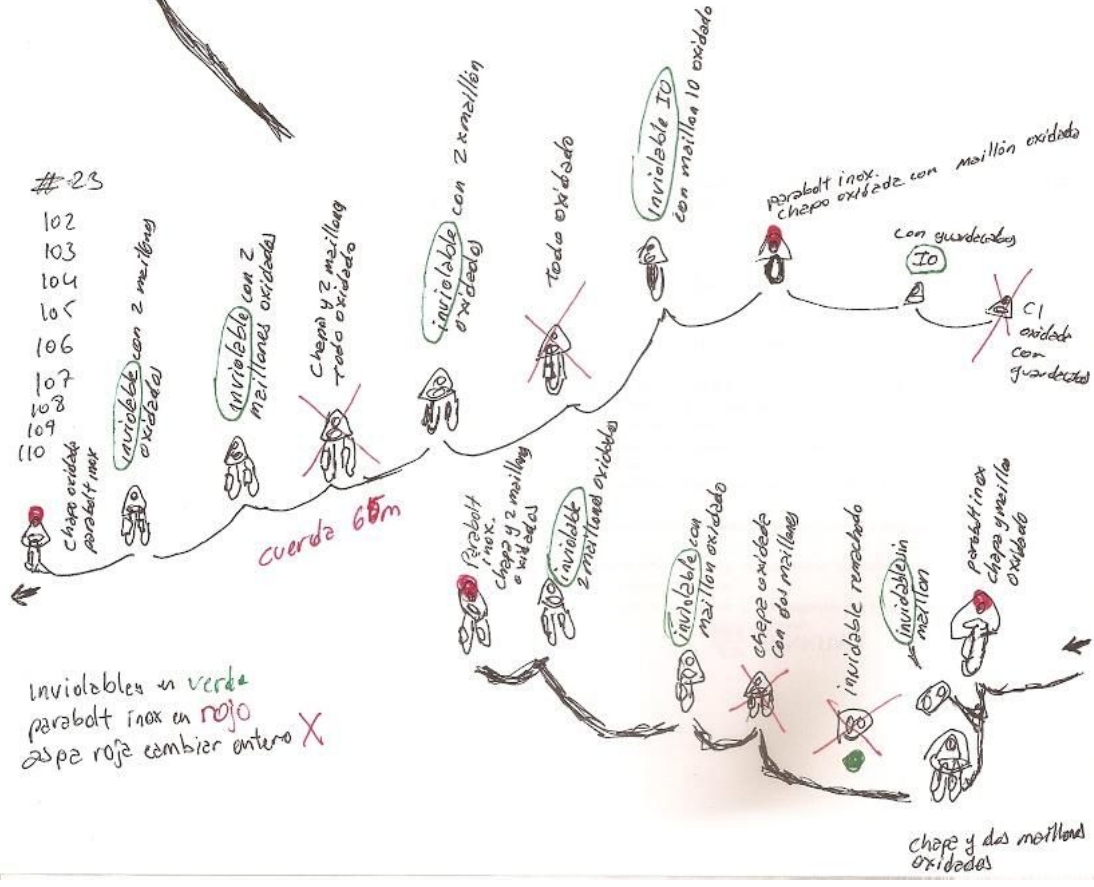 # 23
102
103
104
105
106
107
108
109
110
chapa oxidada
parabolt inox
inviolable con 2 maillones
oxidados
inviolable con 2
maillones oxidados
Chapa y 2 maillons
todo oxidado
inviolable con 2 x maillón
oxidados
todo oxidado
inviolable IO
con maillon 10 oxidado
parabolt inox.
chapa oxidada con maillón oxidada
con guardacabos
IO
C1
oxidada
con
guardacabos
cuerda 65m
Parabolt
inox.
chapa y 2 maillons
oxidados
inviolable
2 maillones oxidados
inviolable con
maillon oxidado
chapa oxidada
con dos maillones
invidable remachado
invidable sin
maillon
parabolt inox
chapa y maillon
oxidado
chapa y dos maillones
oxidados
inviolables en verde
parabolt inox en rojo
aspa roja cambiar entero X